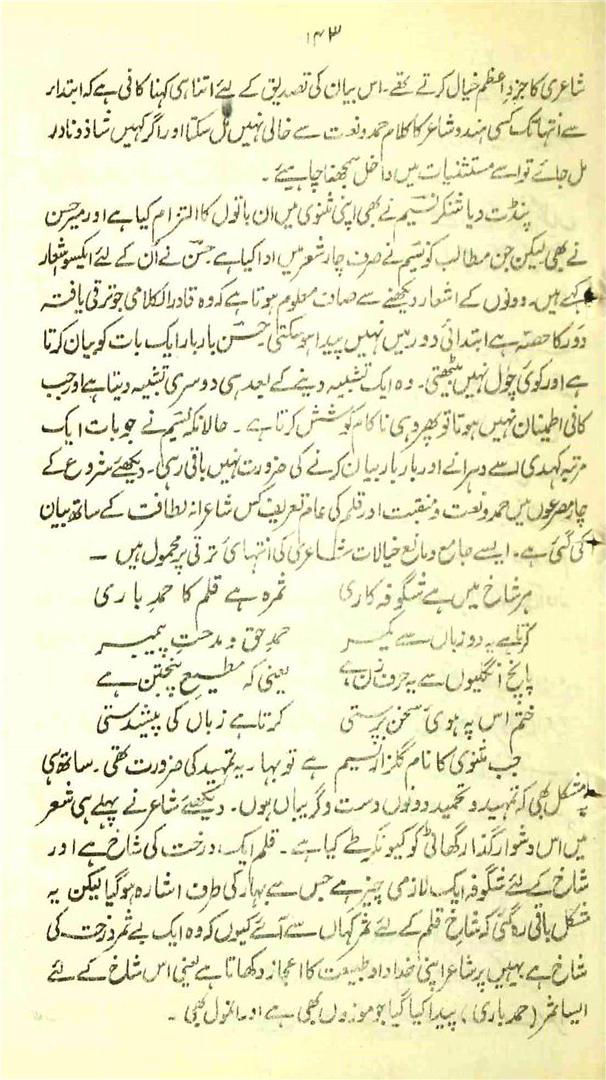 ۱۴۳
شاعری کا جزو اعظم خیال کرتے تھے۔ اس بیان کی تصدیق کے لئے اتنا ہی کہنا کافی ہے کہ ابتدار
سے انتہا تک کسی ہندو شاعر کا کلام حمد و نعت سے خالی نہیں مل سکتا اور اگر کہیں شاذ و نادر
مل جائے تو اسے مستثنیات میں داخل سمجھنا چاہیئے ۔
پنڈت دیا شنکر نسیم نے بھی اپنی مثنوی میں ان باتوں کا التزام کیا ہے اور میر حسن
نے بھی لیکن جن مطالب کو نسیم نے صرف چار شعر میں ادا کیا ہے حسن نے اُن کے لئے ایکسو شعار
کہے ہیں۔ دونوں کے اشعار دیکھنے سے صاف معلوم ہوتا ہے کہ وہ قادر الکلامی جو ترقی یافتہ
دَور کا حصّہ ہے ابتدائی دور میں نہیں پیدا ہو سکتی حسن بار بار ایک بات کو بیان کرتا
ہے اور کوئی چول نہیں بیٹھتی ۔ وہ ایک تشبیہ دینے کے بعد ہی دوسری تشبیہ دیتا ہے اور جب
کافی اطمینان نہیں ہوتا تو پھر وہی ناکام کوشش کرتا ہے ۔ حالانکہ نسیم نے جو بات ایک
مرتبہ کہدی اسے دہرانے اور بار بار بیان کرنے کی ضرورت نہیں باقی رہی۔ دیکھئے شروع کے
چار مصرعوں میں حمد و نعت و منقبت اور قلم کی عام تعریف کس شاعرانہ لطافت کے ساتھ بیان
کی گئی ہے ۔ ایسے جامع و مانع خیالات شاعری کی انتہائی ترقی پر محمول ہیں ۔
ہر شاخ میں ہے شگوفہ کاری ثمرہ ہے قلم کا حمد باری
کرتا ہے یہ دو زباں سے یکسر حمدِ حق و مدحتِ پیمبر
پانچ انگلیوں سے یہ حرف زن ہے یعنی کہ مطیعِ پنجتن ہے
ختم اس پہ ہوئی سخن پرستی کرتا ہے زباں کی پیشدستی
جب مثنوی کا نام گلزار نسیم ہے تو بہا۔ یہ تمہید کی ضرورت تھی ۔ ساتھ ہی
یہ مشکل بھی کہ تمہید و تحمید دونوں دست و گریباں ہوں۔ دیکھئے شاعر نے پہلے ہی شعر
میں اس دشوار گذار گھاٹی کو کیونکر طے کیا ہے ۔ قلم ایک درخت کی شاخ ہے اور
شاخ کے لئے شگوفہ ایک لازمی چیز ہے جس سے بہار کی طرف اشارہ ہو گیا لیکن یہ
شکل باقی رہ گئی کہ شاخ قلم کے لئے ثمر کہاں سے آئے کیوں کہ وہ ایک بے ثمر درخت کی
شاخ ہے یہیں پر شاعر اپنی خداداد طبیعت کا اعجاز دکھاتا ہے یعنی اس شاخ کے لئے
ایسا ثمر (حمد باری) پیدا کیا گیا جو موزوں بھی ہے اور انمول بھی ۔